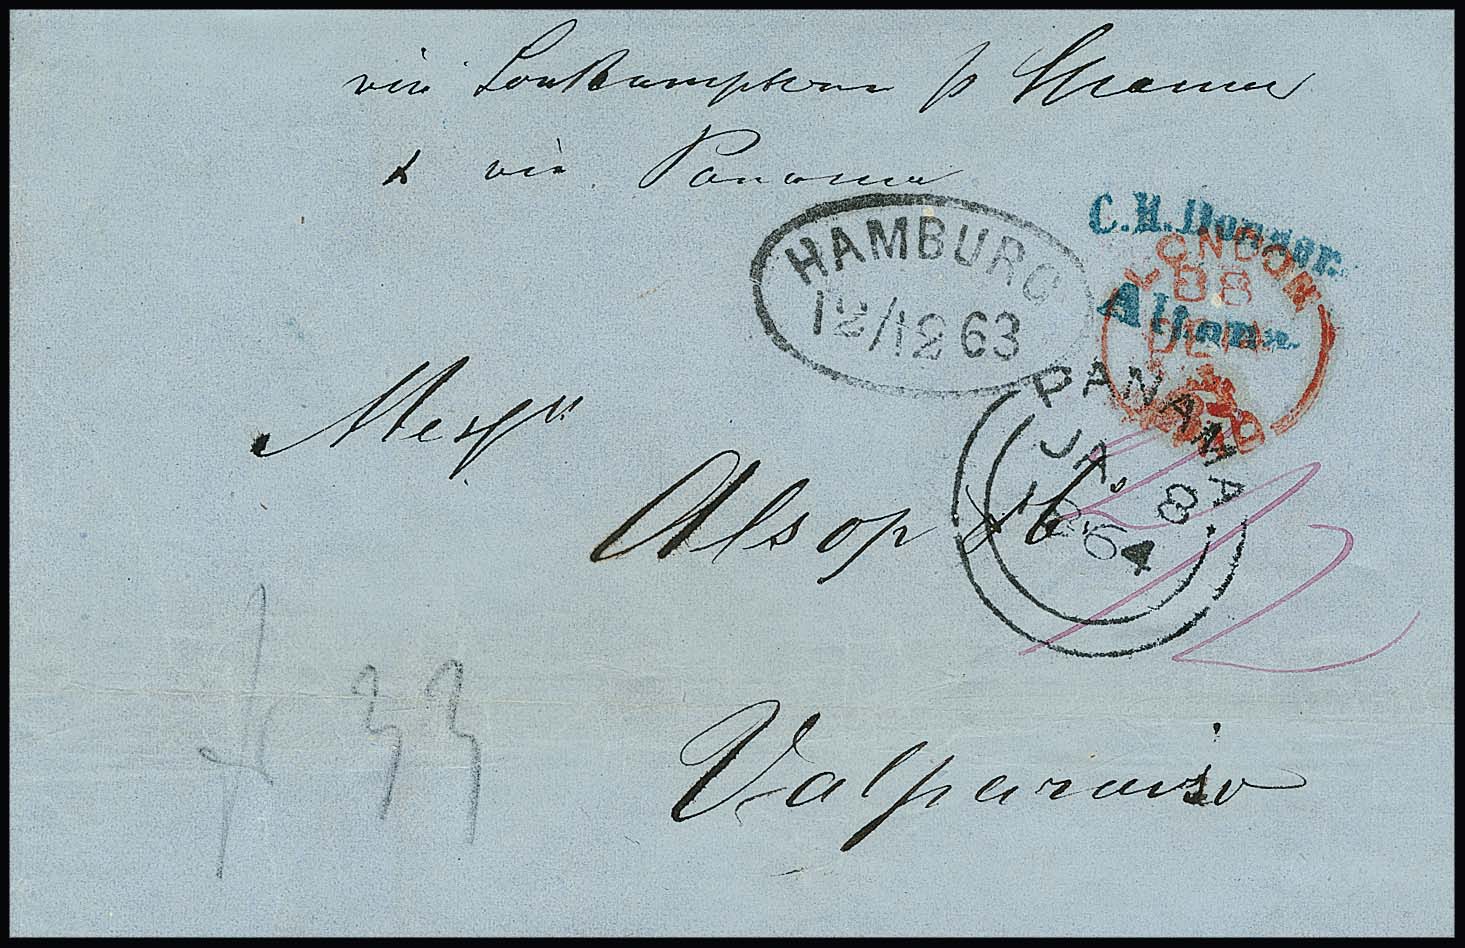 via Southampton p Steamer
& via Panama
C.H. Donner.
Altona.
HAMBURG
12/12 63
LONDON
PAID
PANAMA
JA 8
1864
Messrs
Alsop & Co
Valparaiso
33